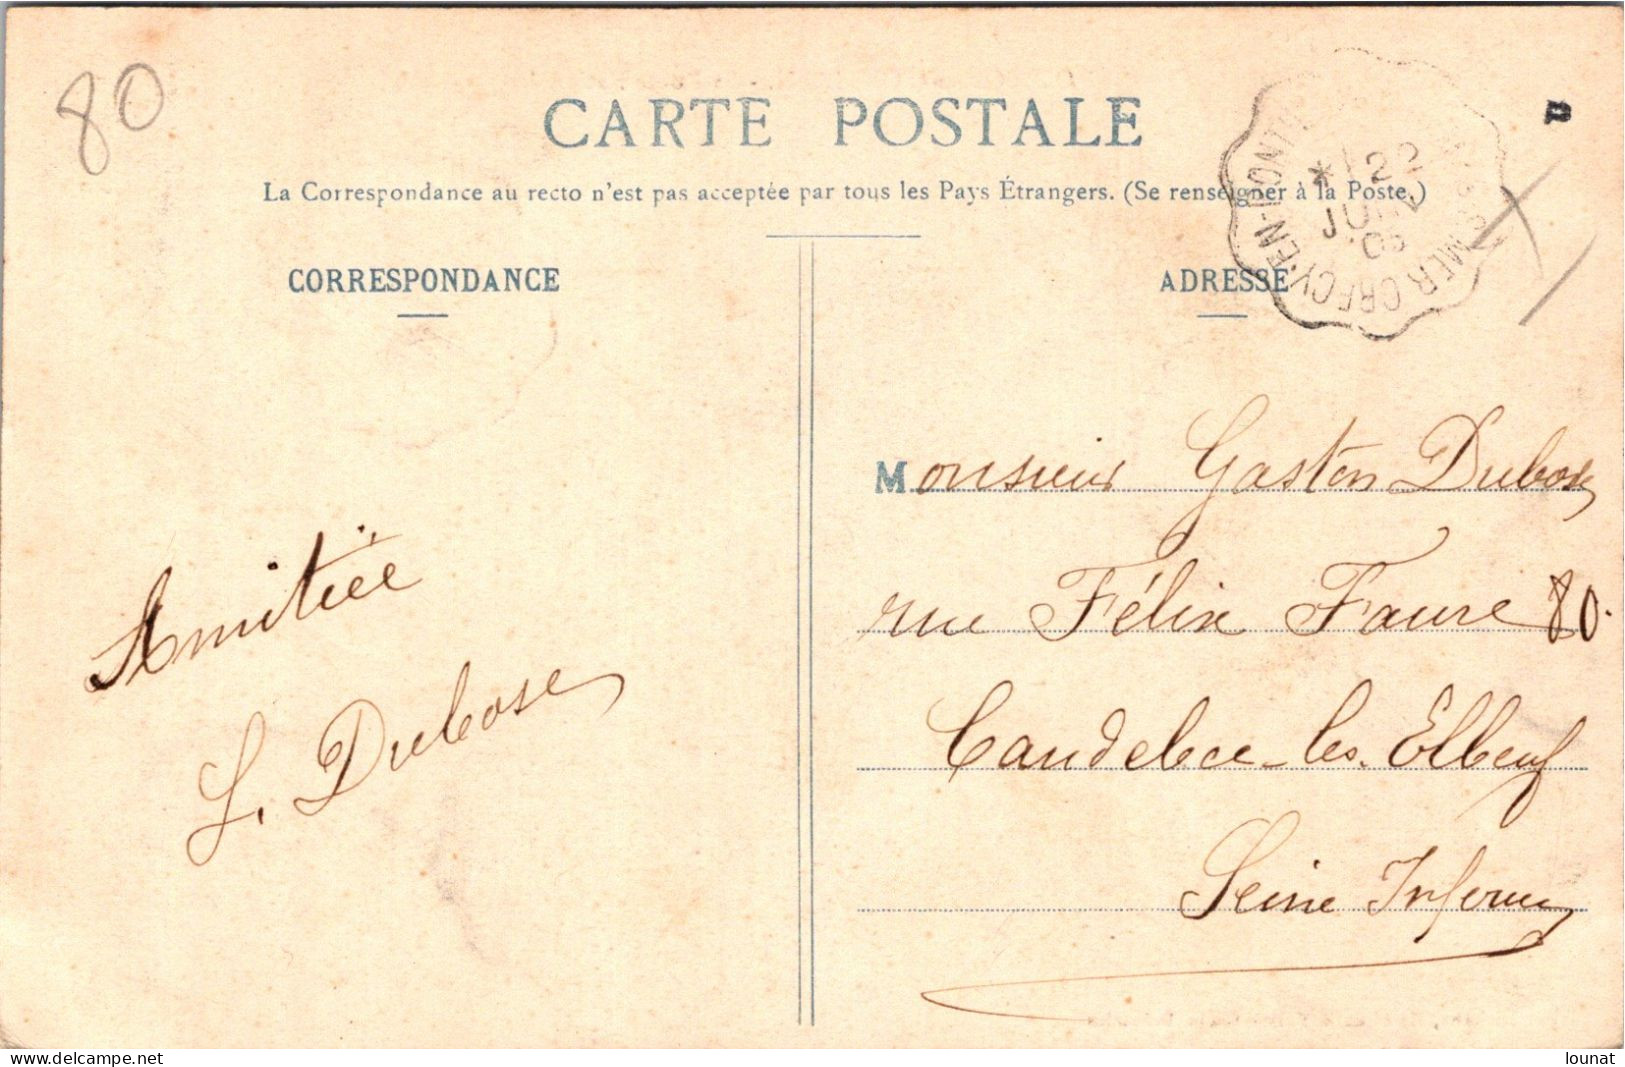 80
CARTE POSTALE
La Correspondance au recto n'est pas acceptée par tous les Pays Étrangers. (Se renseigner à la Poste.)
* 22
JUIN
CRECY-EN-PONT
MER
CORRESPONDANCE
ADRESSE
Monsieur Gaston Dubosc
rue Félix Faure 80.
Caudebec-les-Elbeuf
Seine Inférieure
Amitiée
L. Dubosc
delcampe.net
lounat